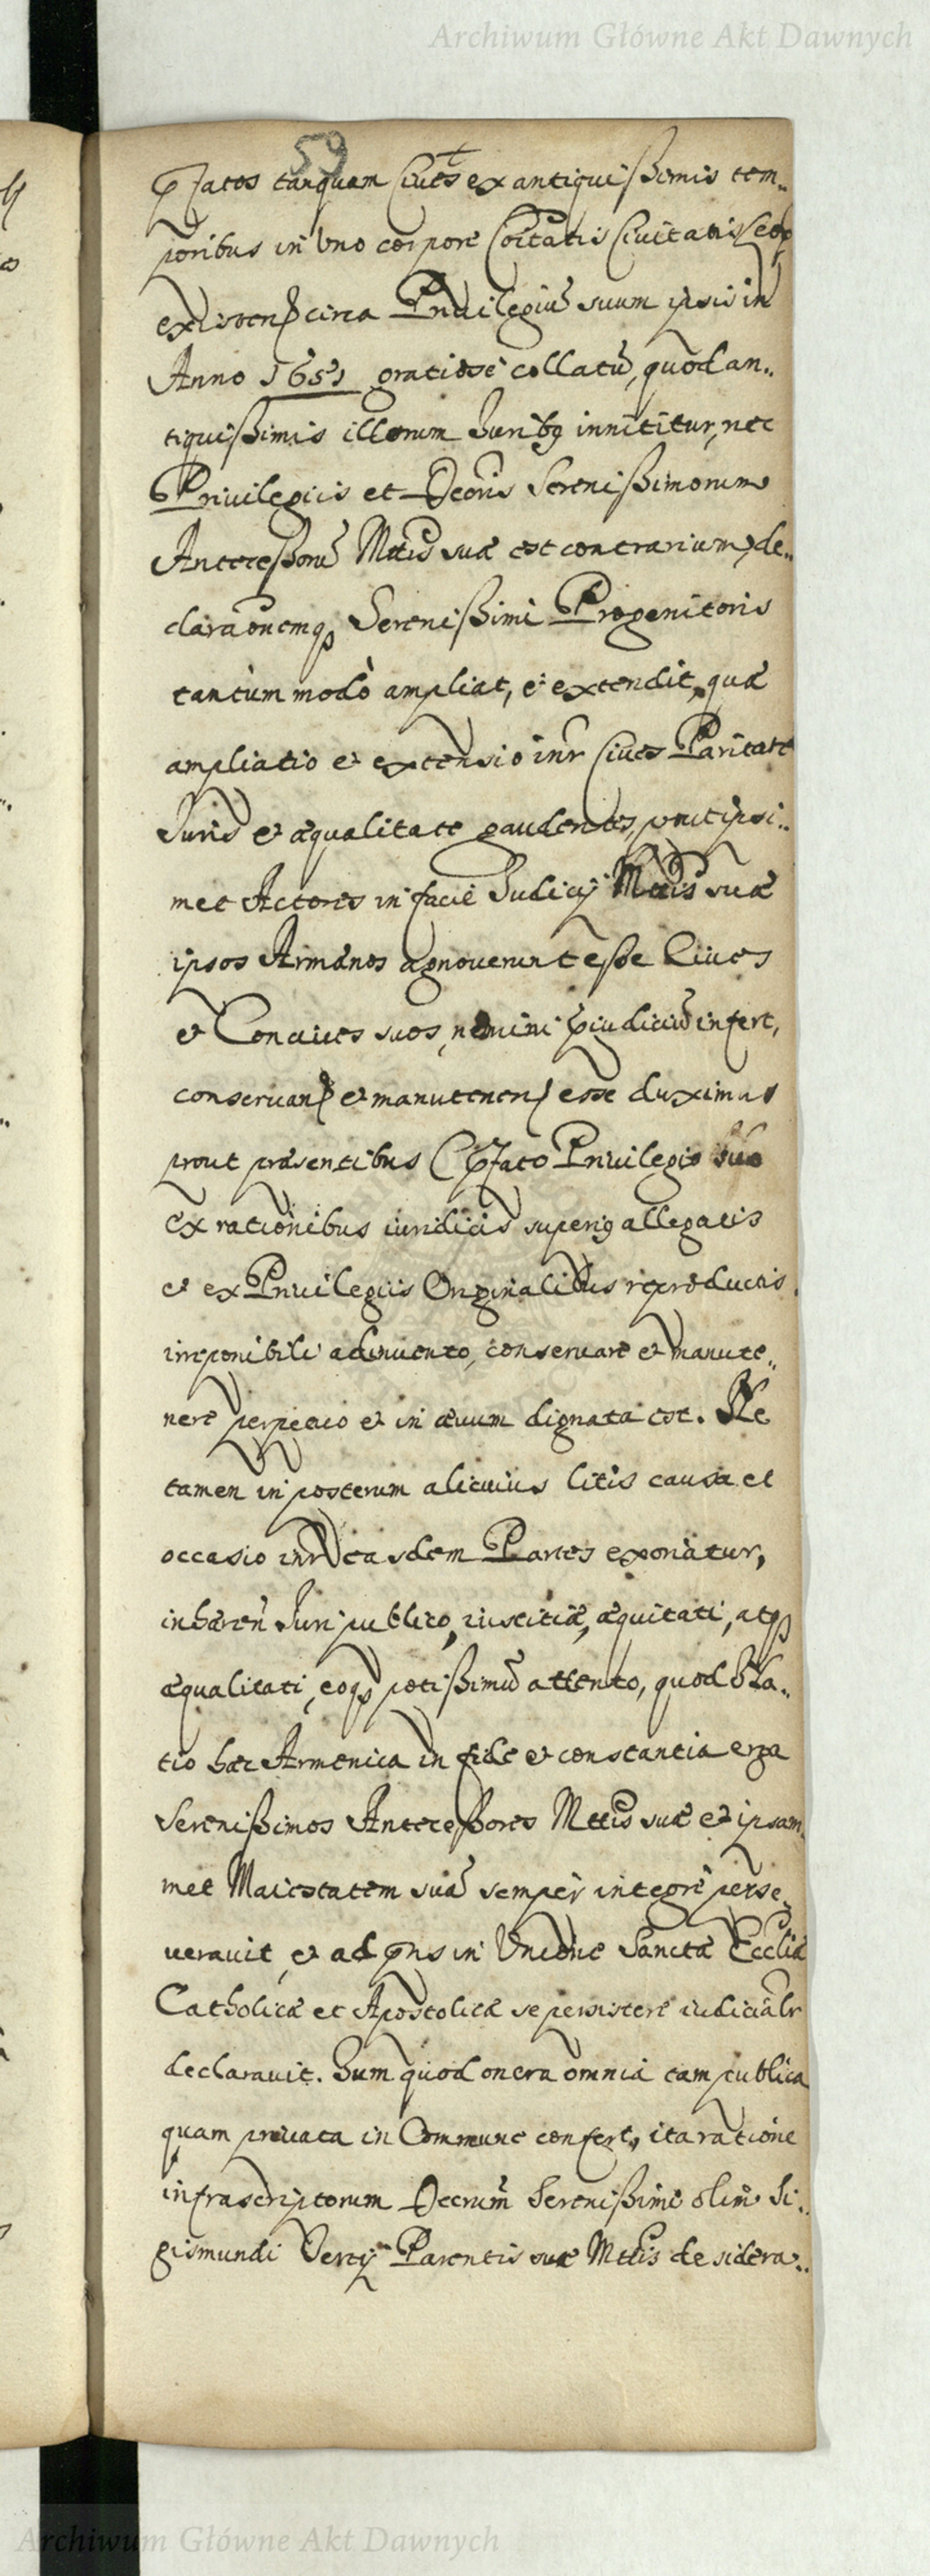 Archiwum Główne Akt Dawnych
59
tanquam Cives ex antiquißimis tem..
poribus in Uno corpore Coitatis Civitatis Leop
existen circa Privilegiū suum ipsis in
Anno 1651 gratiose collatū, quod an..
tiquißimis illorum Juribꝫ innititur, nec
Privilegiis et Decris Serenißimorum
Anteceßorū Mttis suæ est contrarium, de..
claraōnemqꝫ Serenißimi Progenitoris
tantùm modò ampliat, et extendit, quæ
ampliatio et extensio inr Cives Paritate
Juris et æqualitate gaudentes, prout ipsi..
met Actores in facie Judicij Mttis suæ
ipsos Armænos agnoverunt eße Cives
et Concives suos, nemini præiudiciū infert,
conservan et manutenen esse duximus
prout præsentibus Privilegio suo
Ex rationibus iuridicis superiꝫ allegatis
et ex Privilegiis Originalibus reproductis
irreponibili adinvento, conservare et manute..
nere perpetuo et in ævum dignata est. Ne
tamen in posterum alicuius litis causa et
occasio inr easdem Partes exoriatur,
inhæren Juri publico, iustitiæ, æquitati, atqꝫ
æqualitati, eoqꝫ potißimū attento, quod Na..
tio hæc Armenica in fide et constantia erga
Serenißimos Anteceßores Mttis suæ et ipsam
met Maiestatem suā semper integre perse..
veravit, et ad pns in Unione Sanctæ Eccliæ
Catholicæ et Apostolicæ se persistere iudicialr
declaravit. Tum quod onera omnia tam publica
quam privata in Commune confert, ita ratione
infrascriptorum Decrum Serenißimi olim Si..
gismundi Tertij Parentis suæ Mttis desidera..
Archiwum Główne Akt Dawnych